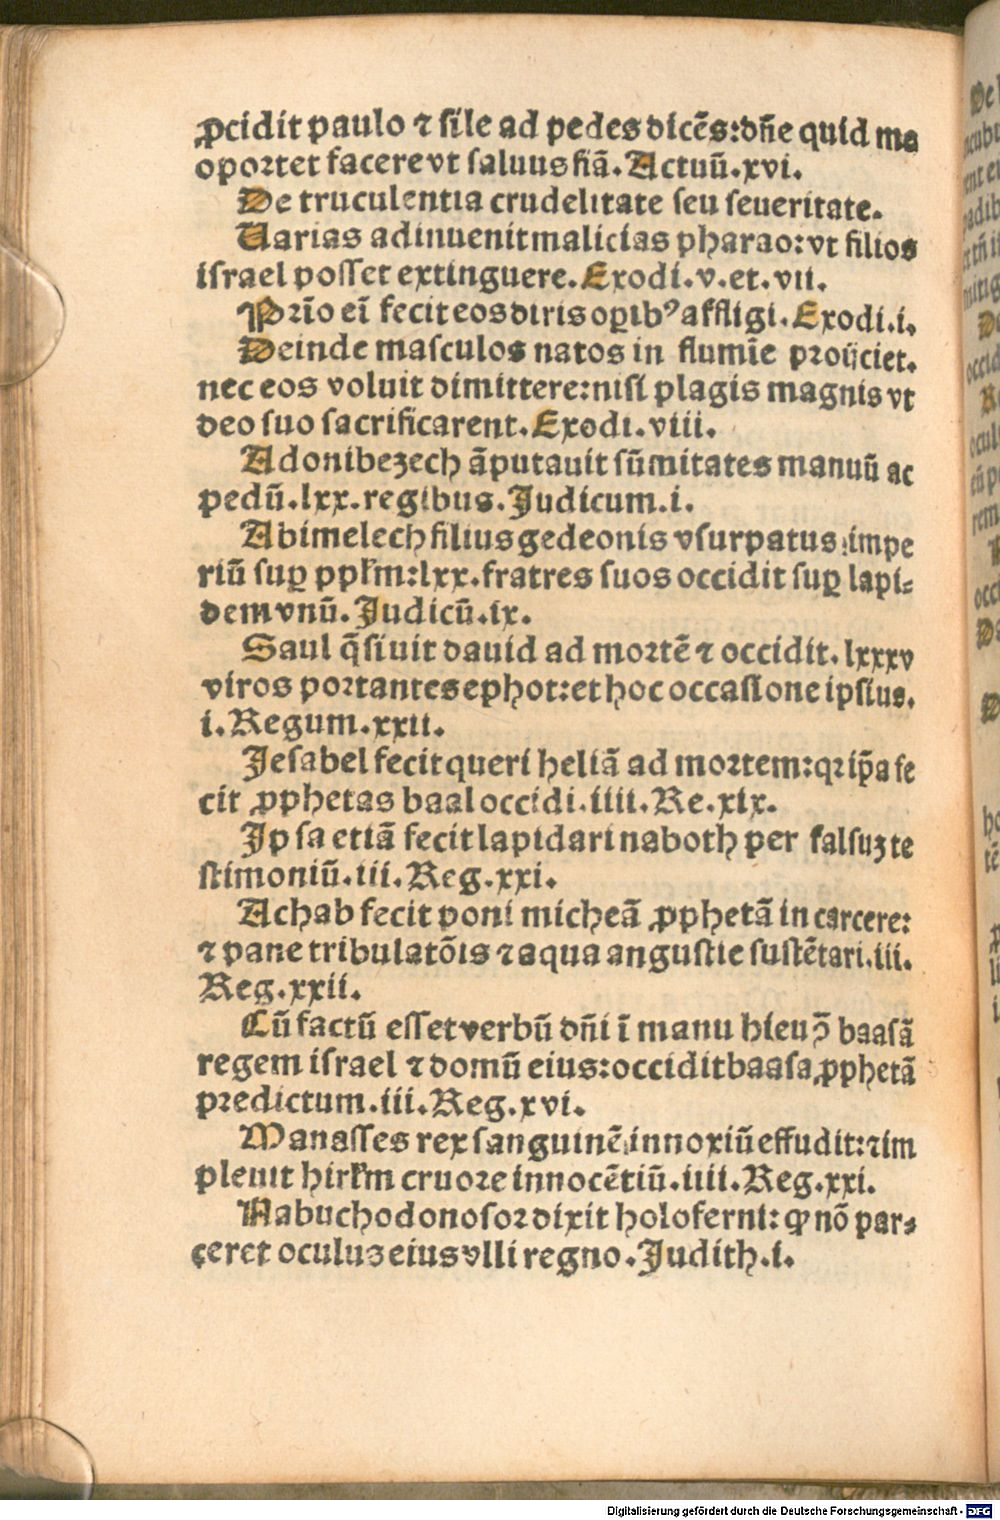 ꝓcidit paulo ⁊ sile ad pedes dicēs:dn̄e quid me
oportet facere vt saluus fiā. Actuū.xvi.
De truculentia crudelitate seu seueritate.
Uarias adinuenit malicias pharao:vt filios
israel posset extinguere. Exodi.v.et.vii.
Prīo eī fecit eos diris oꝑibꝰ affligi. Exodi.i.
Deinde masculos natos in flumīe proijciet.
nec eos voluit dimittere:nisi plagis magnis vt
deo suo sacrificarent. Exodi.viii.
Adonibezech āputauit sūmitates manuū ac
pedū.lxx.regibus. Judicum.i.
Abimelech filius gedeonis vsurpatus impe
riū suꝑ ppl'm:lxx.fratres suos occidit suꝑ lapi⸗
dem vnū. Judicū.ix.
Saul q̄siuit dauid ad mortē ⁊ occidit.lxxxv
viros portantes ephot:et hoc occasione ipsius.
i.Regum.xxii.
Jesabel fecit queri heliā ad mortem:qr ip̄a fe
cit ꝓphetas baal occidi.iiii.Re.xix.
Ipsa etiā fecit lapidari naboth per falsuꝫ te
stimoniū.iii.Reg.xxi.
Achab fecit poni micheā ꝓphetā in carcere:
⁊ pane tribulatōis ⁊ aqua angustie sustētari.iii.
Reg.xxii.
Cū factū esset verbū dn̄i ī manu hieu ꝯ baasā
regem israel ⁊ domū eius:occidit baasa ꝓphetā
predictum.iii.Reg.xvi.
Manasses rex sanguinē innoxiū effudit:⁊ im
pleuit hirl'm cruore innocētiū.iiii.Reg.xxi.
Nabuchodonosor dixit holoferni:ꝙ nō par⸗
ceret oculus eius vlli regno. Judith.i.
Digitalisierung gefördert durch die Deutsche Forschungsgemeinschaft - DFG